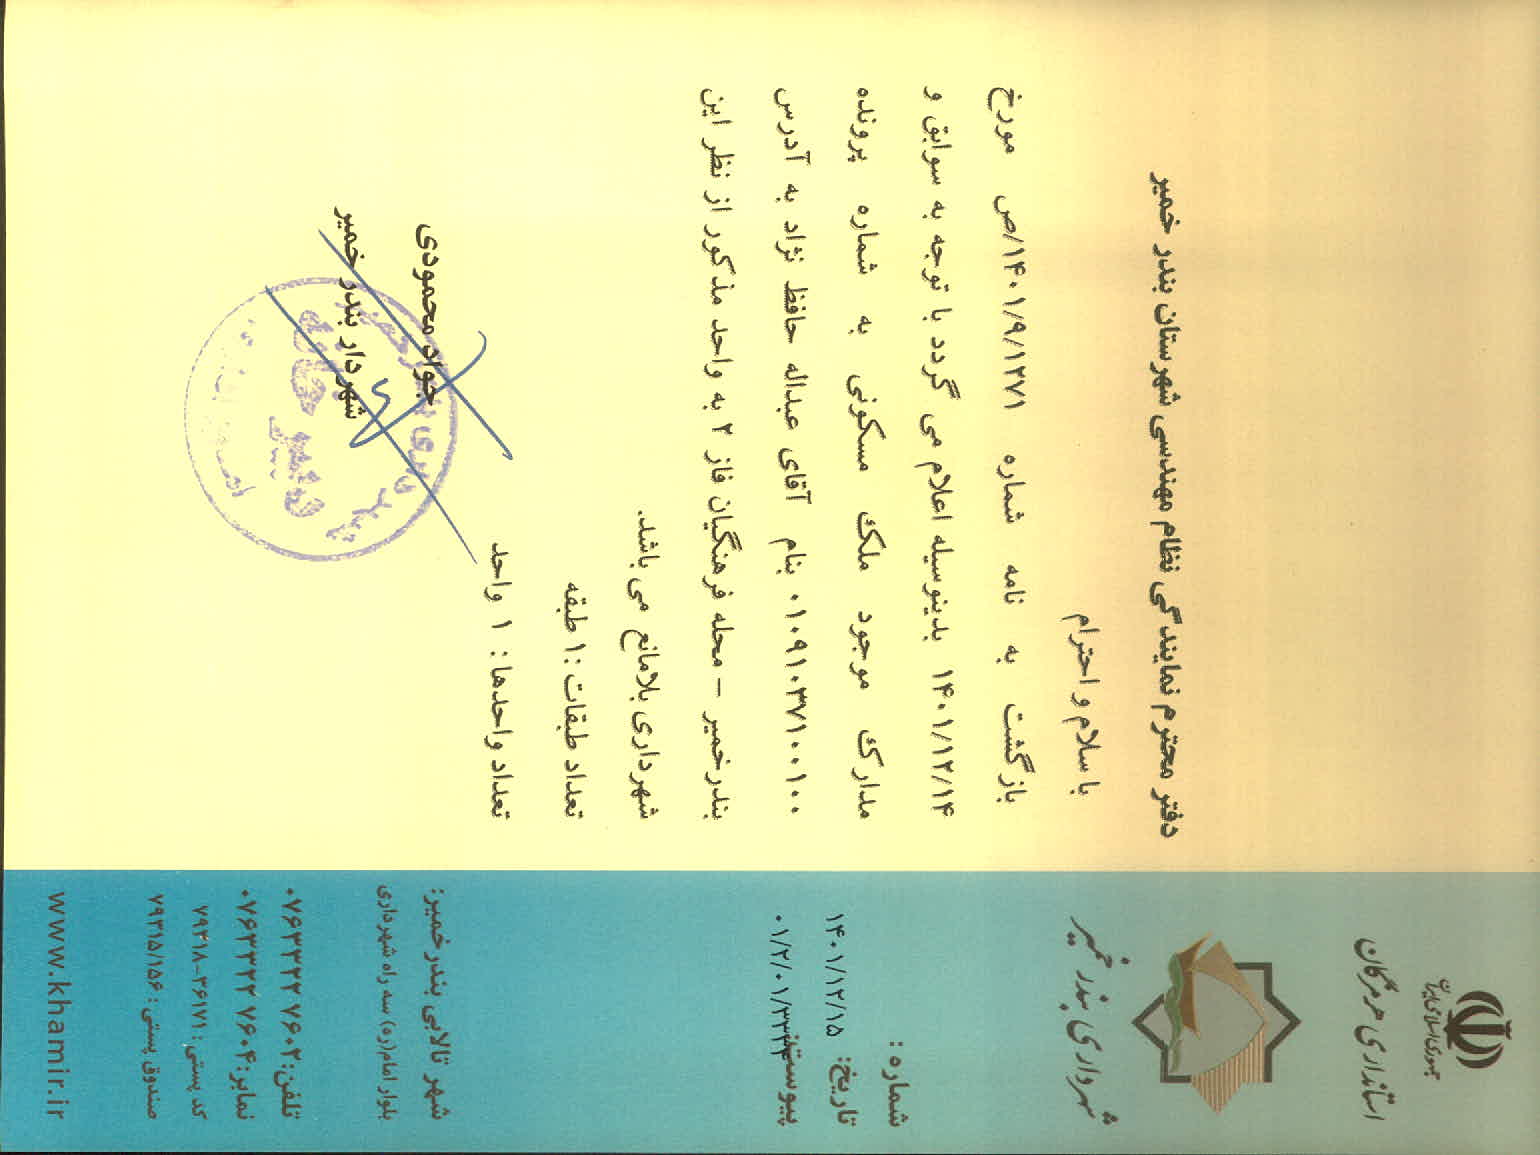 جمهوری اسلامی ایران
استانداری هرمزگان
شهرداری بندر خمیر
شماره :
تاریخ: ۱۴۰۱/۱۲/۱۵
پیوست:
۰۱/۲/۰۱/۳۳۲۴
شهر تالابی بندرخمیر:
بلوار امام(ره) سه راه شهرداری
تلفن: ۰۷۶۳۳۲۲ ۷۶۰۲
نمابر: ۰۷۶۳۳۲۲ ۷۶۰۴
کد پستی : ۳۶۱۷۱-۷۹۳۱۸
صندوق پستی : ۷۹۳۱۵/۱۵۶
www.khamir.ir
دفتر محترم نمایندگی نظام مهندسی شهرستان بندر خمیر
با سلام و احترام
بازگشت به نامه شماره ۱۴۰۱/۹/۱۲۷۱/ص مورخ
۱۴۰۱/۱۲/۱۴ بدینوسیله اعلام می گردد با توجه به سوابق و
مدارک موجود ملک مسکونی به شماره پرونده
۰۱۰۹۱۰۳۷۱۰۰۱۰۰ بنام آقای عبداله حافظ نژاد به آدرس
بندرخمیر – محله فرهنگیان فاز ۲ به واحد مذکور از نظر این
شهرداری بلامانع می باشد.
تعداد طبقات :۱ طبقه
تعداد واحدها: ۱ واحد
جواد محمودی
شهردار بندر خمیر